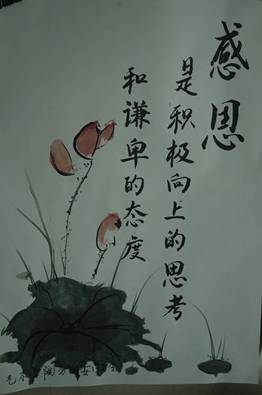 感恩
是积极向上的思考
和谦卑的态度